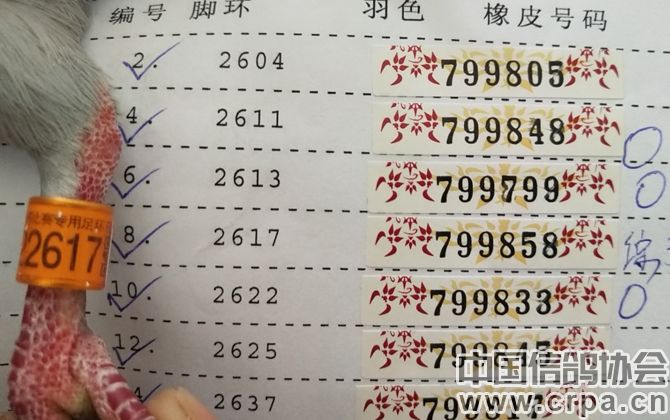 编号 脚环 羽色 橡皮号码
2. 2604 799805
4. 2611 799848
6. 2613 799799
8. 2617 799858
10. 2622 799833
12. 2625
2637
赛专用足环
22617
中国信鸽协会
www.crpa.cn